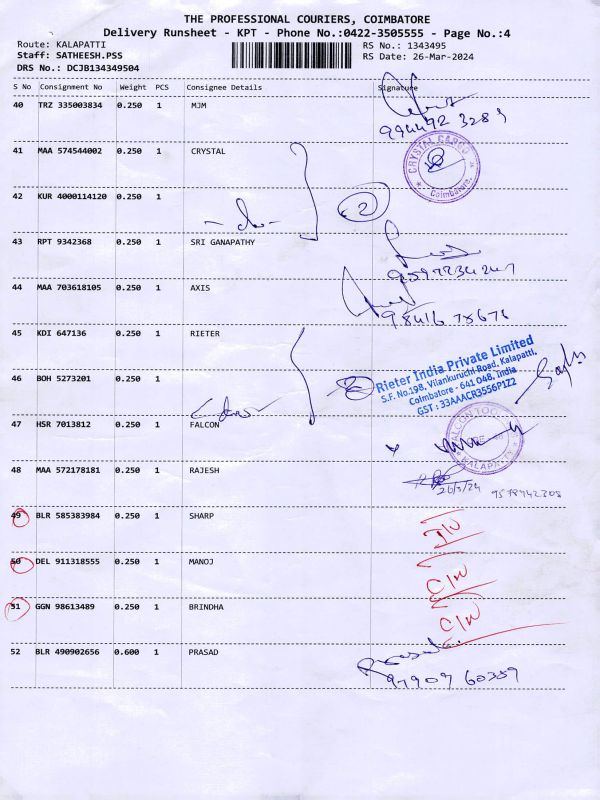 THE PROFESSIONAL COURIERS, COIMBATORE
Delivery Runsheet - KPT - Phone No.:0422-3505555 - Page No.:4
Route: KALAPATTI RS No.: 1343495
Staff: SATHEESH.PSS RS Date: 26-Mar-2024
DRS No.: DCJB134349504
S No Consignment No Weight PCS Consignee Details Signature
40 TRZ 335003834 0.250 1 MJM
994492 3289
41 MAA 574544002 0.250 1 CRYSTAL
CRYSTAL CARGO Coimbatore.
42 KUR 4000114120 0.250 1
- do - 2
43 RPT 9342368 0.250 1 SRI GANAPATHY
44 MAA 703618105 0.250 1 AXIS
98416 78676
45 KDI 647136 0.250 1 RIETER
Rieter India Private Limited
S.F. No.198, Vilankuruchi Road, Kalapatti,
Coimbatore - 641 048, India
GST : 33AAACR3556P1Z2
46 BOH 5273201 0.250 1
47 HSR 7013812 0.250 1 FALCON
48 MAA 572178181 0.250 1 RAJESH
26/3/24 9578942308
49 BLR 585383984 0.250 1 SHARP
50 DEL 911318555 0.250 1 MANOJ
51 GGN 98613489 0.250 1 BRINDHA
52 BLR 490902656 0.600 1 PRASAD
Prasad
97909 60359